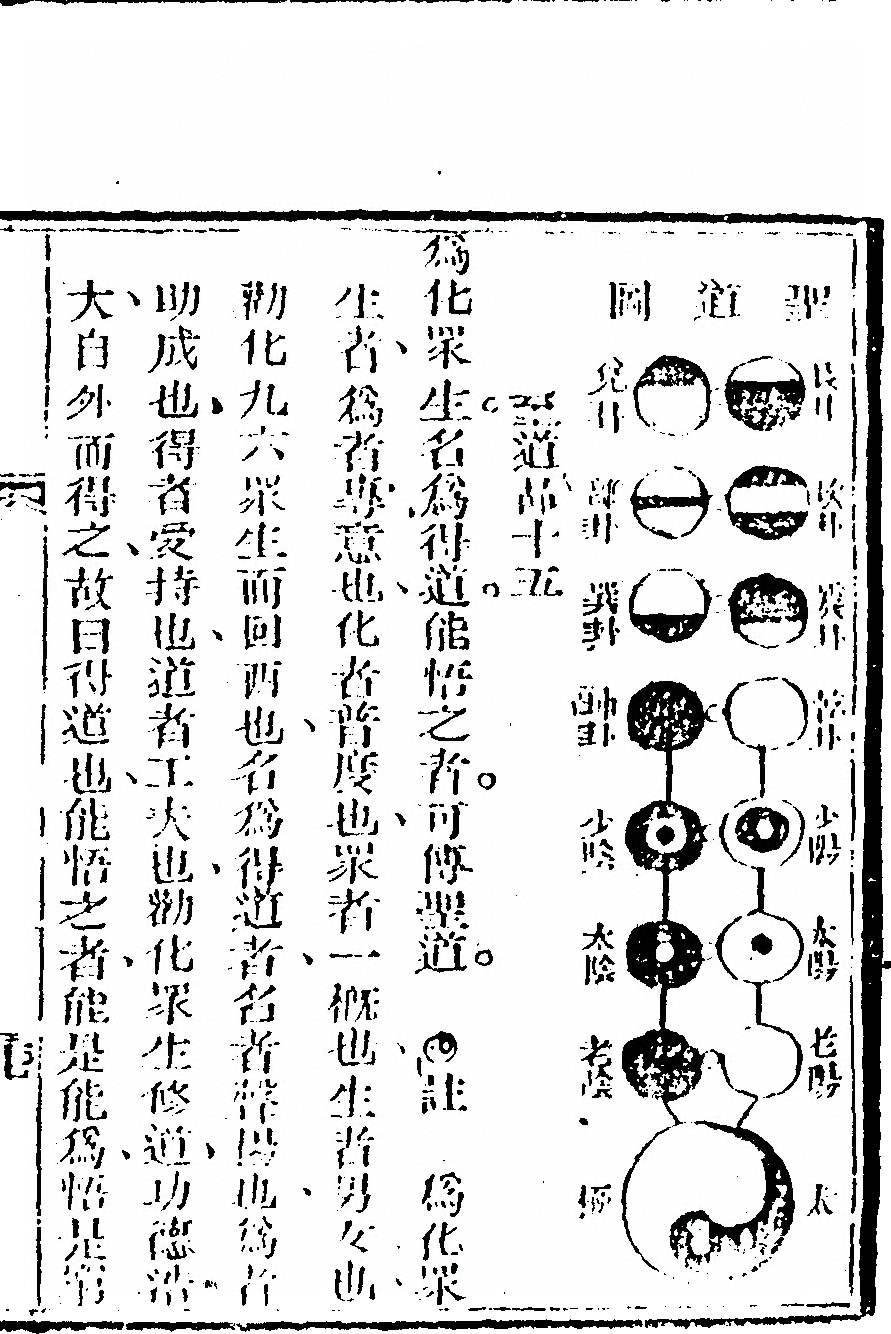 聖道圖
艮卦
兌卦
坎卦
離卦
震卦
巽卦
乾卦
坤卦
少陽
少陰
太陽
太陰
老陽
老陰
太極
聖道品十五
為化眾生。名為得道。能悟之者。可傳聖道。註 為化眾
生者、為者專意也、化者普度也、眾者一概也、生者男女也、
勸化九六眾生而回西也、名為得道者、名者聲揚也、為者
助成也、得者愛持也、道者工夫也、勸化眾生修道、功德浩
大、自外而得之、故曰得道也、能悟之者、能是能為、悟是窮